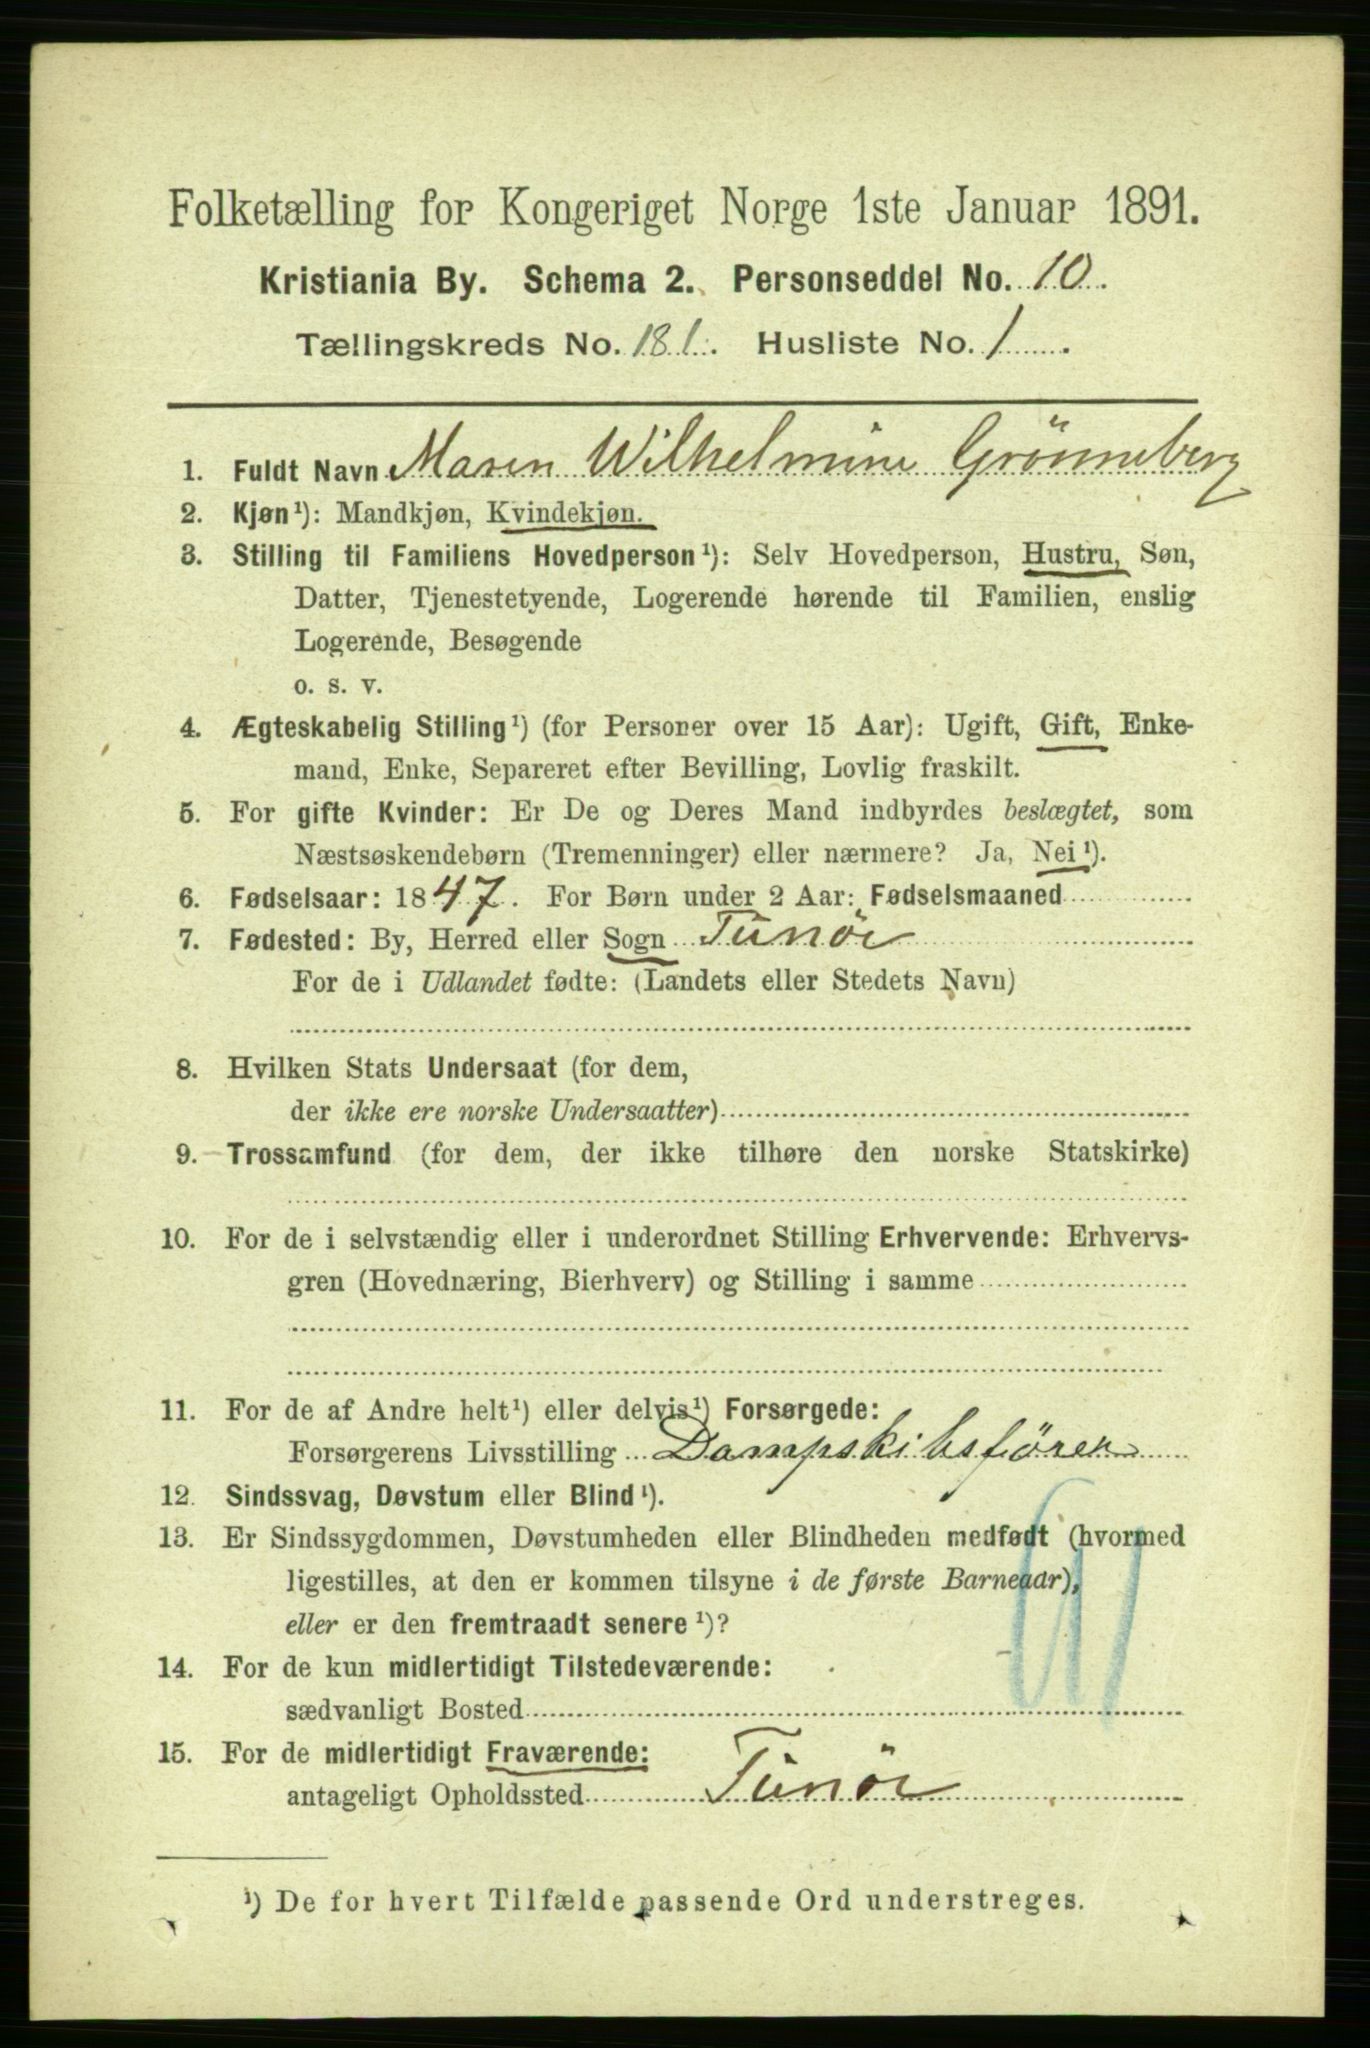 Folketælling for Kongeriget Norge 1ste Januar 1891.
Kristiania By. Schema 2. Personseddel No. 10.
Tællingskreds No. 181. Husliste No. 1.
1. Fuldt Navn Maren Wilhelmine Grönneberg
2. Kjøn¹): Mandkjøn, Kvindekjøn.
3. Stilling til Familiens Hovedperson¹): Selv Hovedperson, Hustru, Søn,
Datter, Tjenestetyende, Logerende hørende til Familien, enslig
Logerende, Besøgende
o. s. v.
4. Ægteskabelig Stilling¹) (for Personer over 15 Aar): Ugift, Gift, Enke-
mand, Enke, Separeret efter Bevilling, Lovlig fraskilt.
5. For gifte Kvinder: Er De og Deres Mand indbyrdes beslægtet, som
Næstsøskendebørn (Tremenninger) eller nærmere? Ja, Nei¹).
6. Fødselsaar: 1847. For Børn under 2 Aar: Fødselsmaaned
7. Fødested: By, Herred eller Sogn Tjömö
For de i Udlandet fødte: (Landets eller Stedets Navn)
8. Hvilken Stats Undersaat (for dem,
der ikke ere norske Undersaatter)
9. Trossamfund (for dem, der ikke tilhøre den norske Statskirke)
10. For de i selvstændig eller i underordnet Stilling Erhvervende: Erhvervs-
gren (Hovednæring, Bierhverv) og Stilling i samme
11. For de af Andre helt¹) eller delvis¹) Forsørgede:
Forsørgerens Livsstilling Dampskibsförer
12. Sindssvag, Døvstum eller Blind¹).
13. Er Sindssygdommen, Døvstumheden eller Blindheden medfødt (hvormed
ligestilles, at den er kommen tilsyne i de første Barneaar),
eller er den fremtraadt senere¹)?
14. For de kun midlertidigt Tilstedeværende:
sædvanligt Bosted
15. For de midlertidigt Fraværende:
antageligt Opholdssted Tjömö
¹) De for hvert Tilfælde passende Ord understreges.